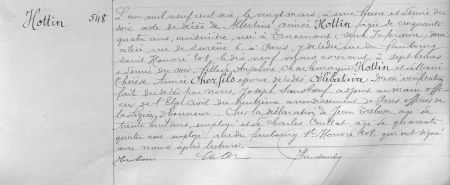 Hottin
548
L'an mil neuf cent six, le vingt mars, à une heure et demie du
soir, acte de décès de Albertine Aimée Hottin âgée de cinquante
quatre ans, cuisinière née à Ernemont, Seine Inférieure, domi
ciliée rue de Suresne 6, à Paris, y décédée rue du faubourg
Saint Honoré 208, le dix neuf mars courant à sept heures
et demie du soir, fille de Charlemagne Hottin et de
Aimée époux décédés. Célibataire. Dressé vérification
faite du décès par nous, Joseph adjoint au maire offi
cier de l'Etat Civil du huitième arrondissement de Paris officier de
la Légion d'honneur. Sur la déclaration de Jean âgé de
trente huit ans, employé et de Charles âgé de quarante
quatre ans employé, rue du faubourg St Honoré 208, qui ont signé
avec nous après lecture.